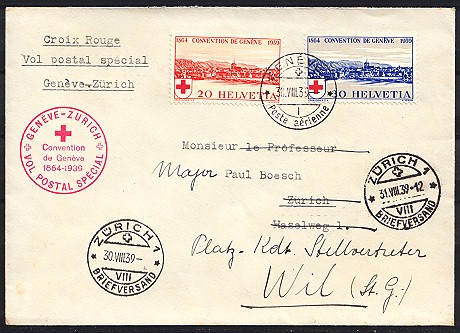 Croix Rouge
Vol postal spécial
Genève-Zürich
1864 CONVENTION DE GENÈVE 1939
20 HELVETIA
1864 CONVENTION DE GENÈVE 1939
30 HELVETIA
GENÈVE
31.VIII.39
1
Poste aérienne
GENÈVE-ZURICH
Convention
de Genève
1864-1939
VOL POSTAL SPÉCIAL
Monsieur le Professeur
Major Paul Boesch
Zürich
Haselweg 1.
Platz-Kdt. Stellvertreter
Wil (St. G.)
ZÜRICH 1
31.VIII.39-12
VIII
BRIEFVERSAND
ZÜRICH 1
30.VIII.39-
VIII
BRIEFVERSAND